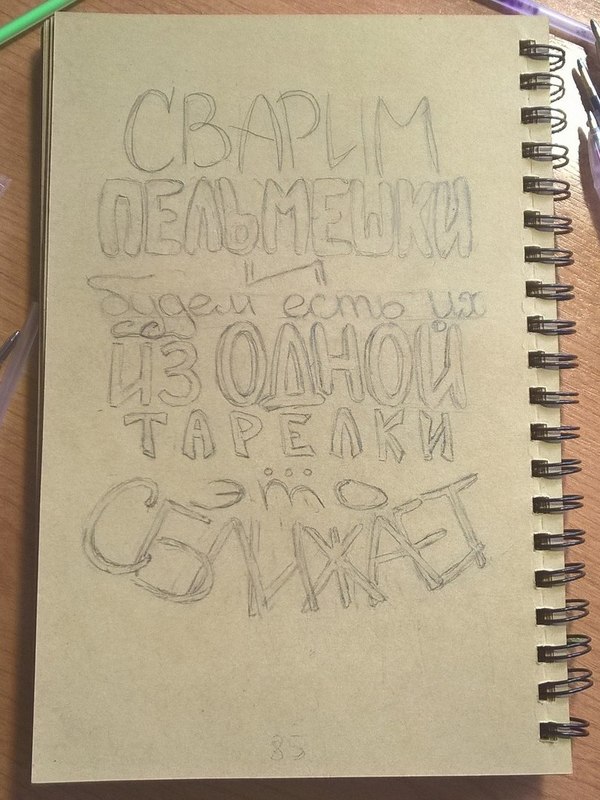 СВАРЫМ
ПЕЛЬМЕШКИ
И
будем есть их
ИЗ ОДНОЙ
ТАРЕЛКИ
...
это
СБЛИЖАЕТ
35